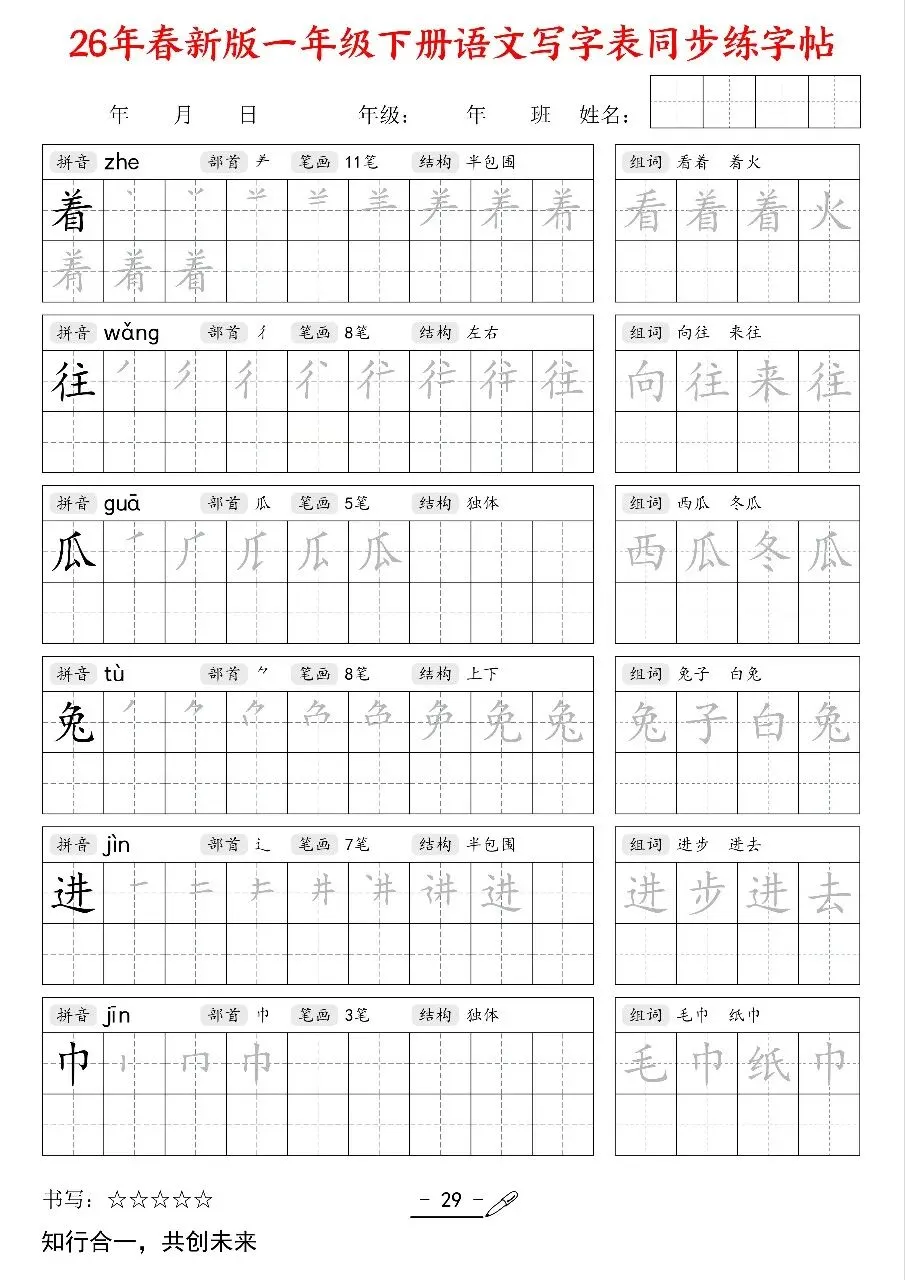 26年春新版一年级下册语文写字表同步练字帖
年 月 日 年级： 年 班 姓名：
拼音 zhe 部首 ⺶ 笔画 11笔 结构 半包围 组词 看着 着火
着 看着着火
拼音 wǎng 部首 彳 笔画 8笔 结构 左右 组词 向往 来往
往 向往来往
拼音 guā 部首 瓜 笔画 5笔 结构 独体 组词 西瓜 冬瓜
瓜 西瓜冬瓜
拼音 tù 部首 ⺈ 笔画 8笔 结构 上下 组词 兔子 白兔
兔 兔子白兔
拼音 jìn 部首 辶 笔画 7笔 结构 半包围 组词 进步 进去
进 进步进去
拼音 jīn 部首 巾 笔画 3笔 结构 独体 组词 毛巾 纸巾
巾 毛巾纸巾
书写：☆☆☆☆☆ - 29 -
知行合一，共创未来